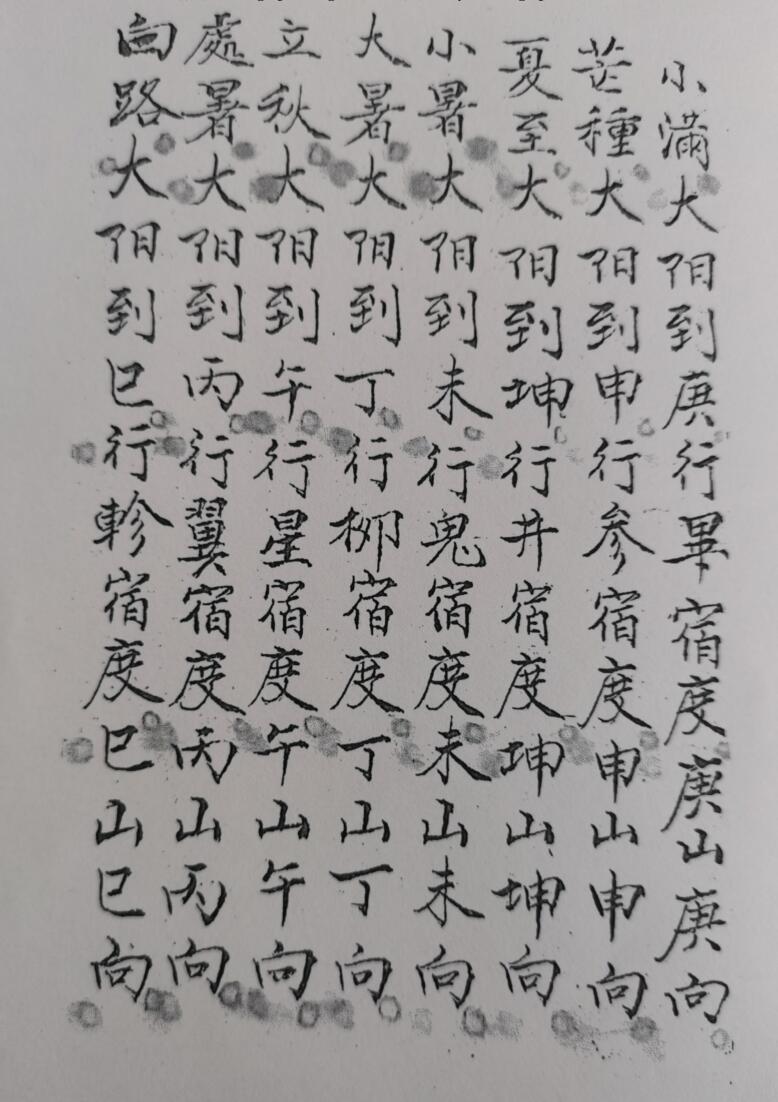 小滿大阳到庚行畢宿度庚山庚向
芒種大阳到申行参宿度申山申向
夏至大阳到坤行井宿度坤山坤向
小暑大阳到未行鬼宿度未山未向
大暑大阳到丁行柳宿度丁山丁向
立秋大阳到午行星宿度午山午向
處暑大阳到丙行翼宿度丙山丙向
白路大阳到巳行軫宿度巳山巳向